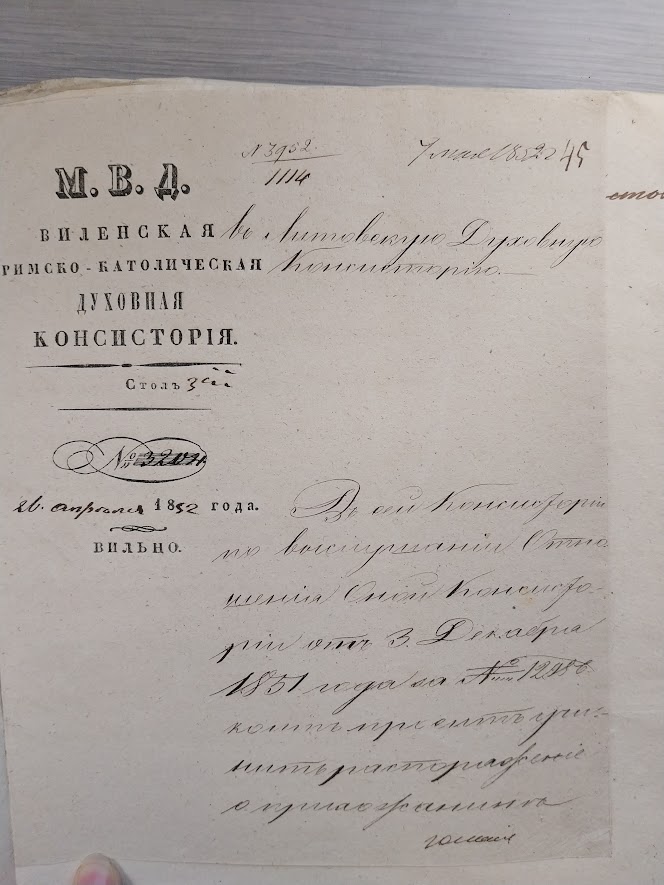 N 3952
1114
7 мая 1852 г 45
М. В. Д.
ВИЛЕНСКАЯ
РИМСКО-КАТОЛИЧЕСКАЯ
ДУХОВНАЯ
КОНСИСТОРІЯ.
Столъ 3ій
№ 3204
26 апреля 1852 года.
ВИЛЬНО.
въ Литовскую Духовную
Консисторію.
Въ сей Консисторіи
по выслушаніи Отно
шенія Оной Консисто-
ріи отъ 3. Декабря
1851 года за №
коимъ проситъ учи-
нить распоряженіе
о прихожанинѣ